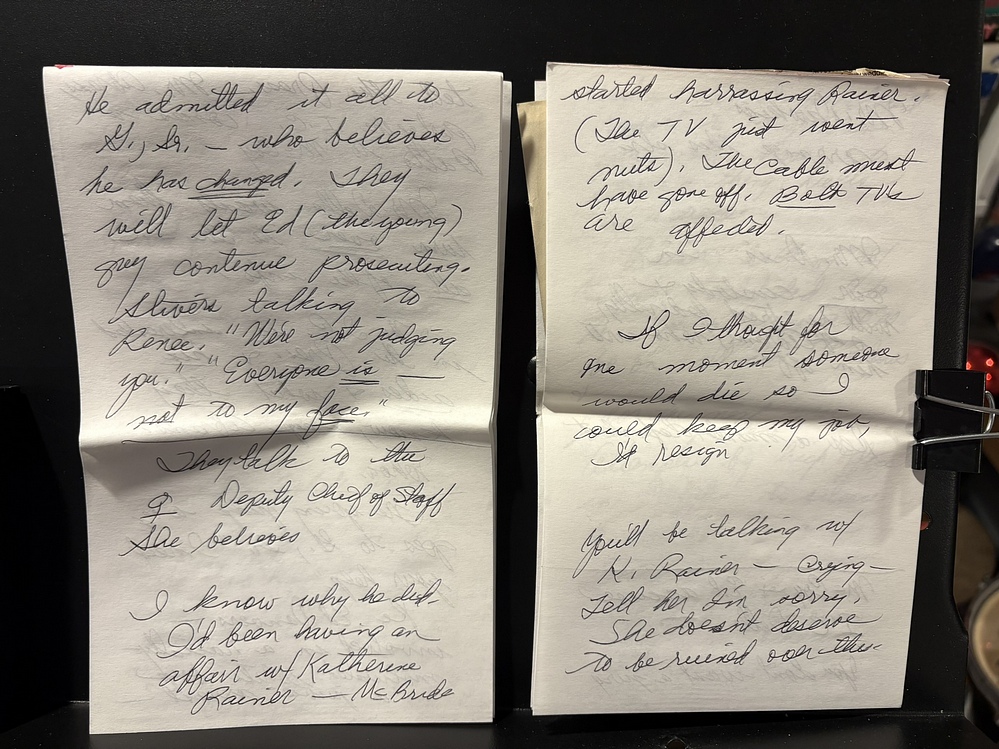 He admitted it all to
G., Sr. – who believes
he has changed. They
will let Ed (the young)
guy contenue prosecuting.
Stivers talking to
Renee. "We're not judging
you." "Everyone is —
not to my face."
They talk to the
♀ Deputy Chief of Staff
She believes
I know why he did.
I'd been having an
affair w/ Katherine
Rainer — McBride
started harrassing Rainer.
(The TV just went
nuts). The cable must
have gone off. Both TVs
are affected.
If I thought for
one moment someone
would die so I
could keep my job,
I'd resign
You'll be talking w/
K. Rainer — crying —
Tell her I'm sorry.
She doesn't deserve
to be ruined over this.